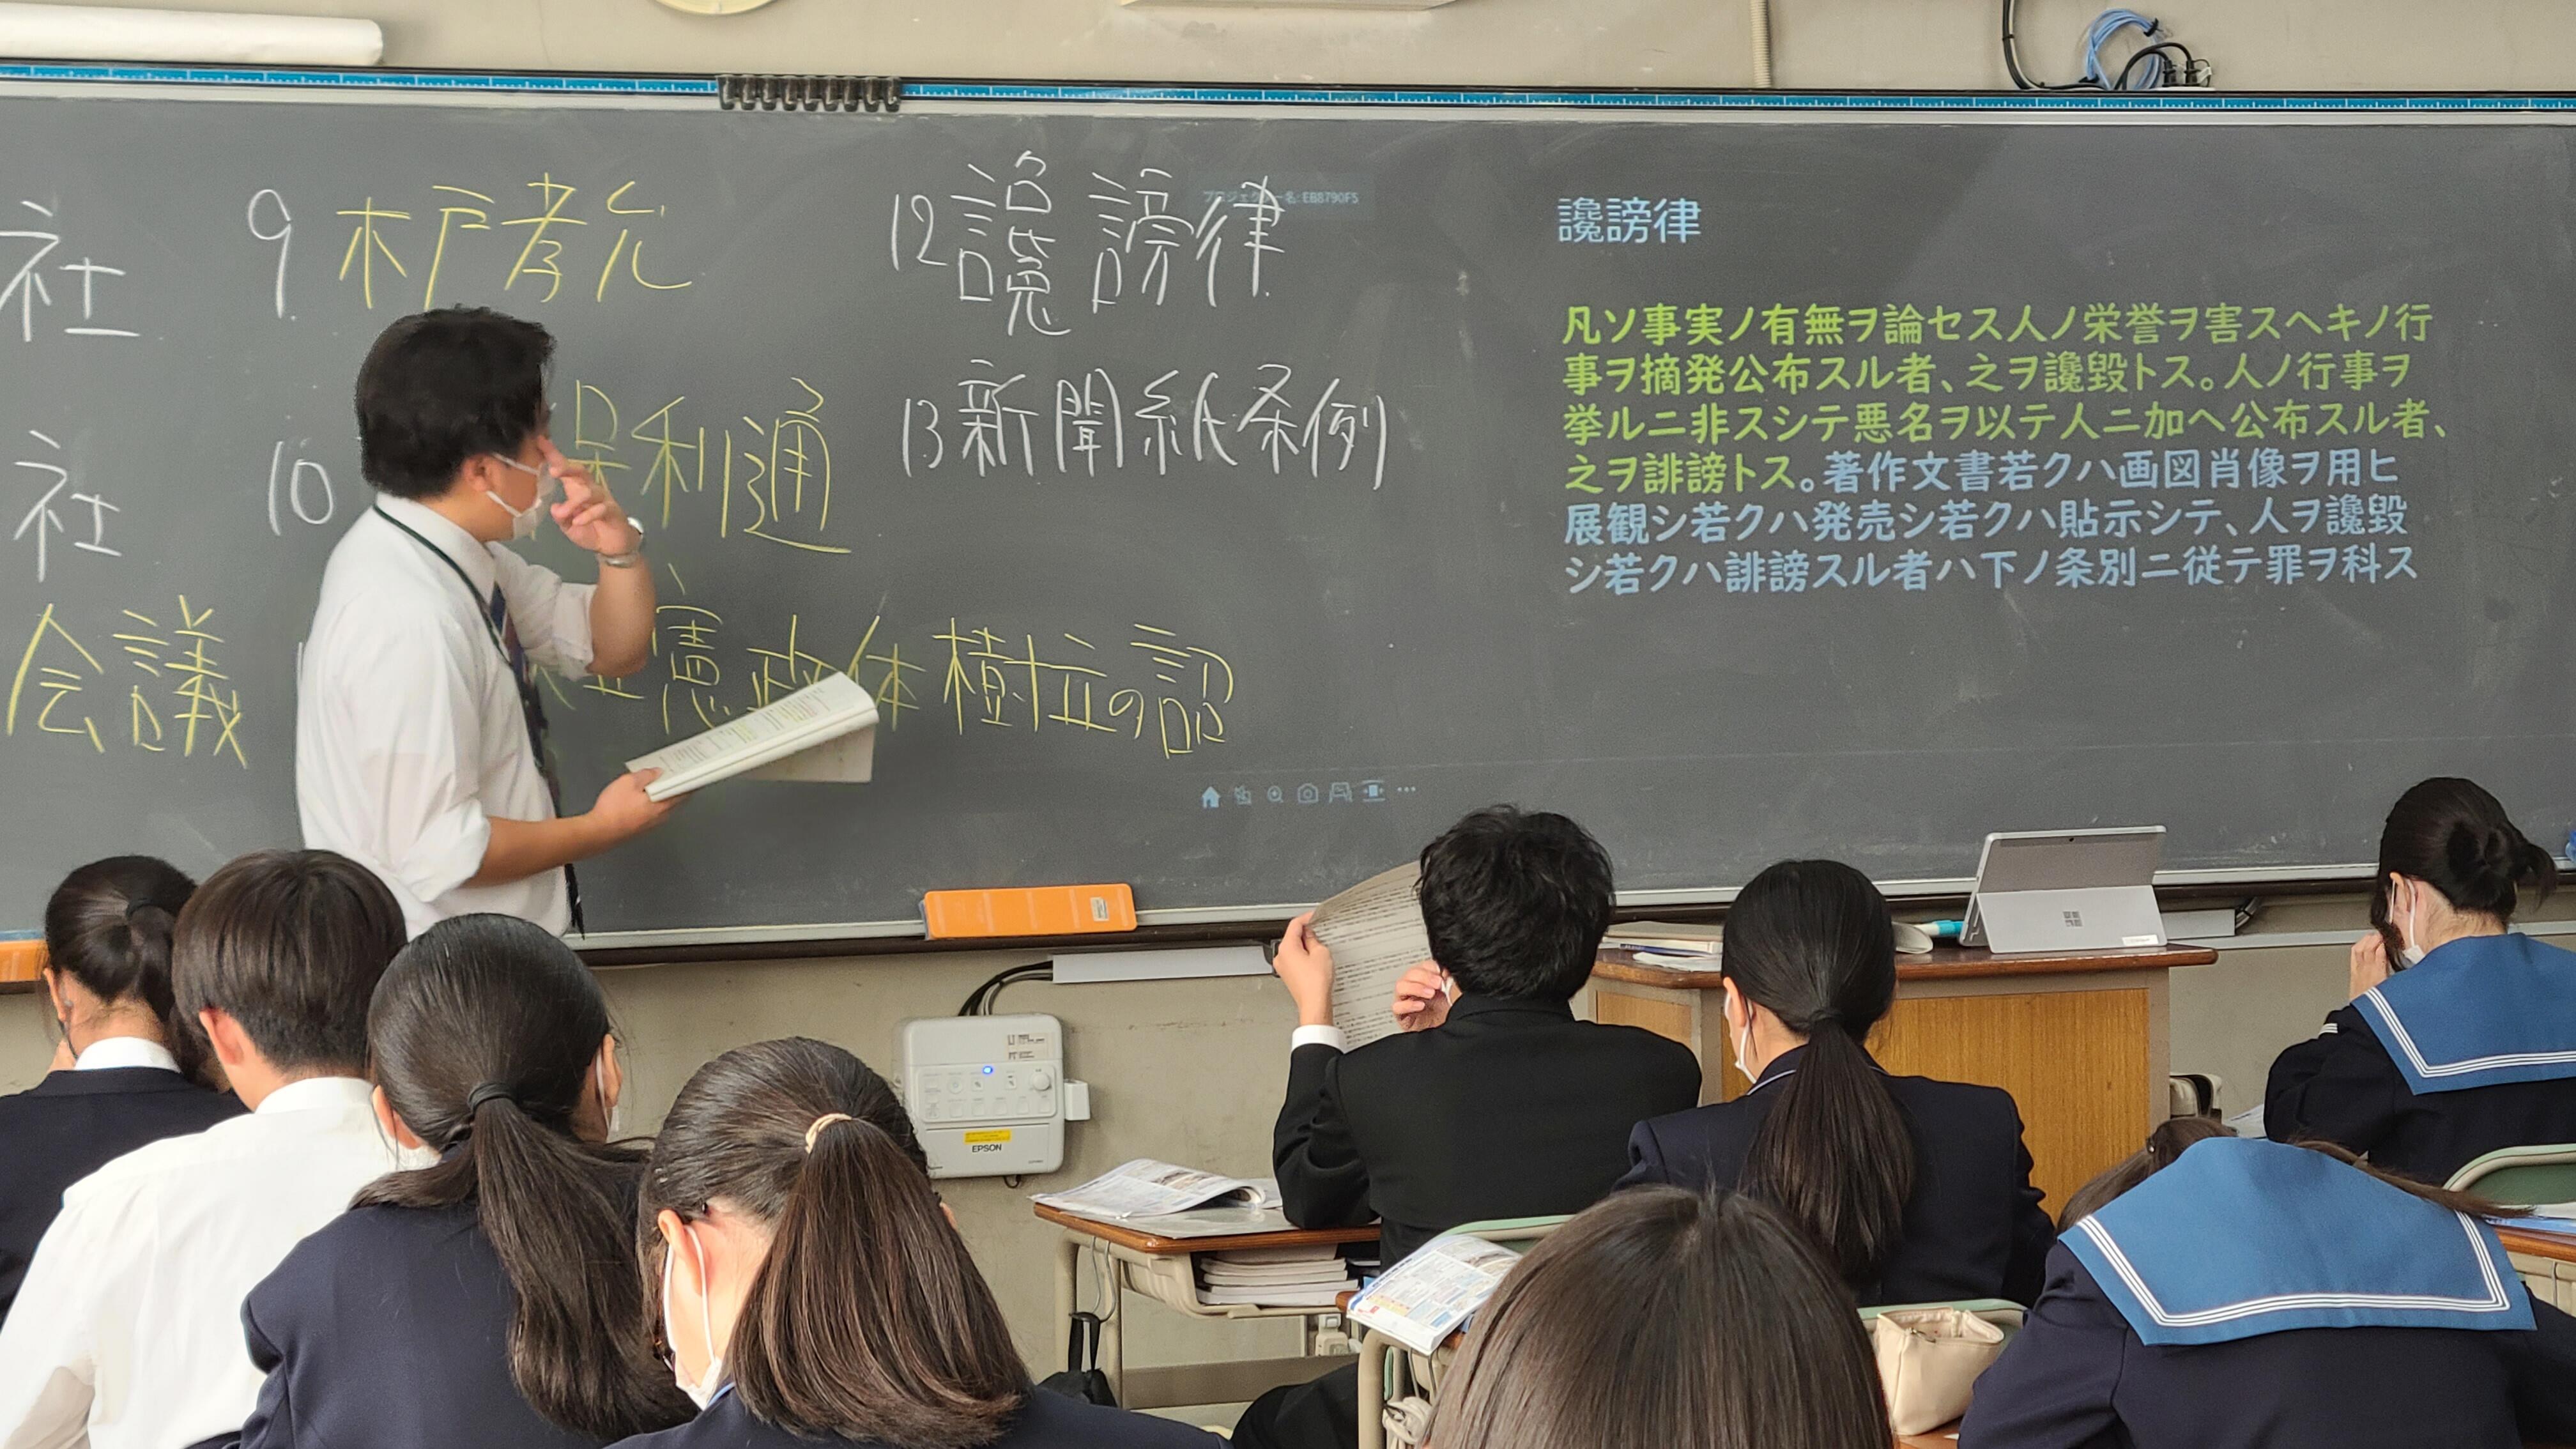 社
9 木戸孝允
社
10 保利通
会議
立憲政体樹立の詔
12 讒謗律
13 新聞紙条例
プロジェクター名: EB8790F5
讒謗律
凡ソ事実ノ有無ヲ論セス人ノ栄誉ヲ害スヘキノ行
事ヲ摘発公布スル者、之ヲ讒毀トス。人ノ行事ヲ
挙ルニ非スシテ悪名ヲ以テ人ニ加ヘ公布スル者、
之ヲ誹謗トス。著作文書若クハ画図肖像ヲ用ヒ
展観シ若クハ発売シ若クハ貼示シテ、人ヲ讒毀
シ若クハ誹謗スル者ハ下ノ条別ニ従テ罪ヲ科ス
EPSON